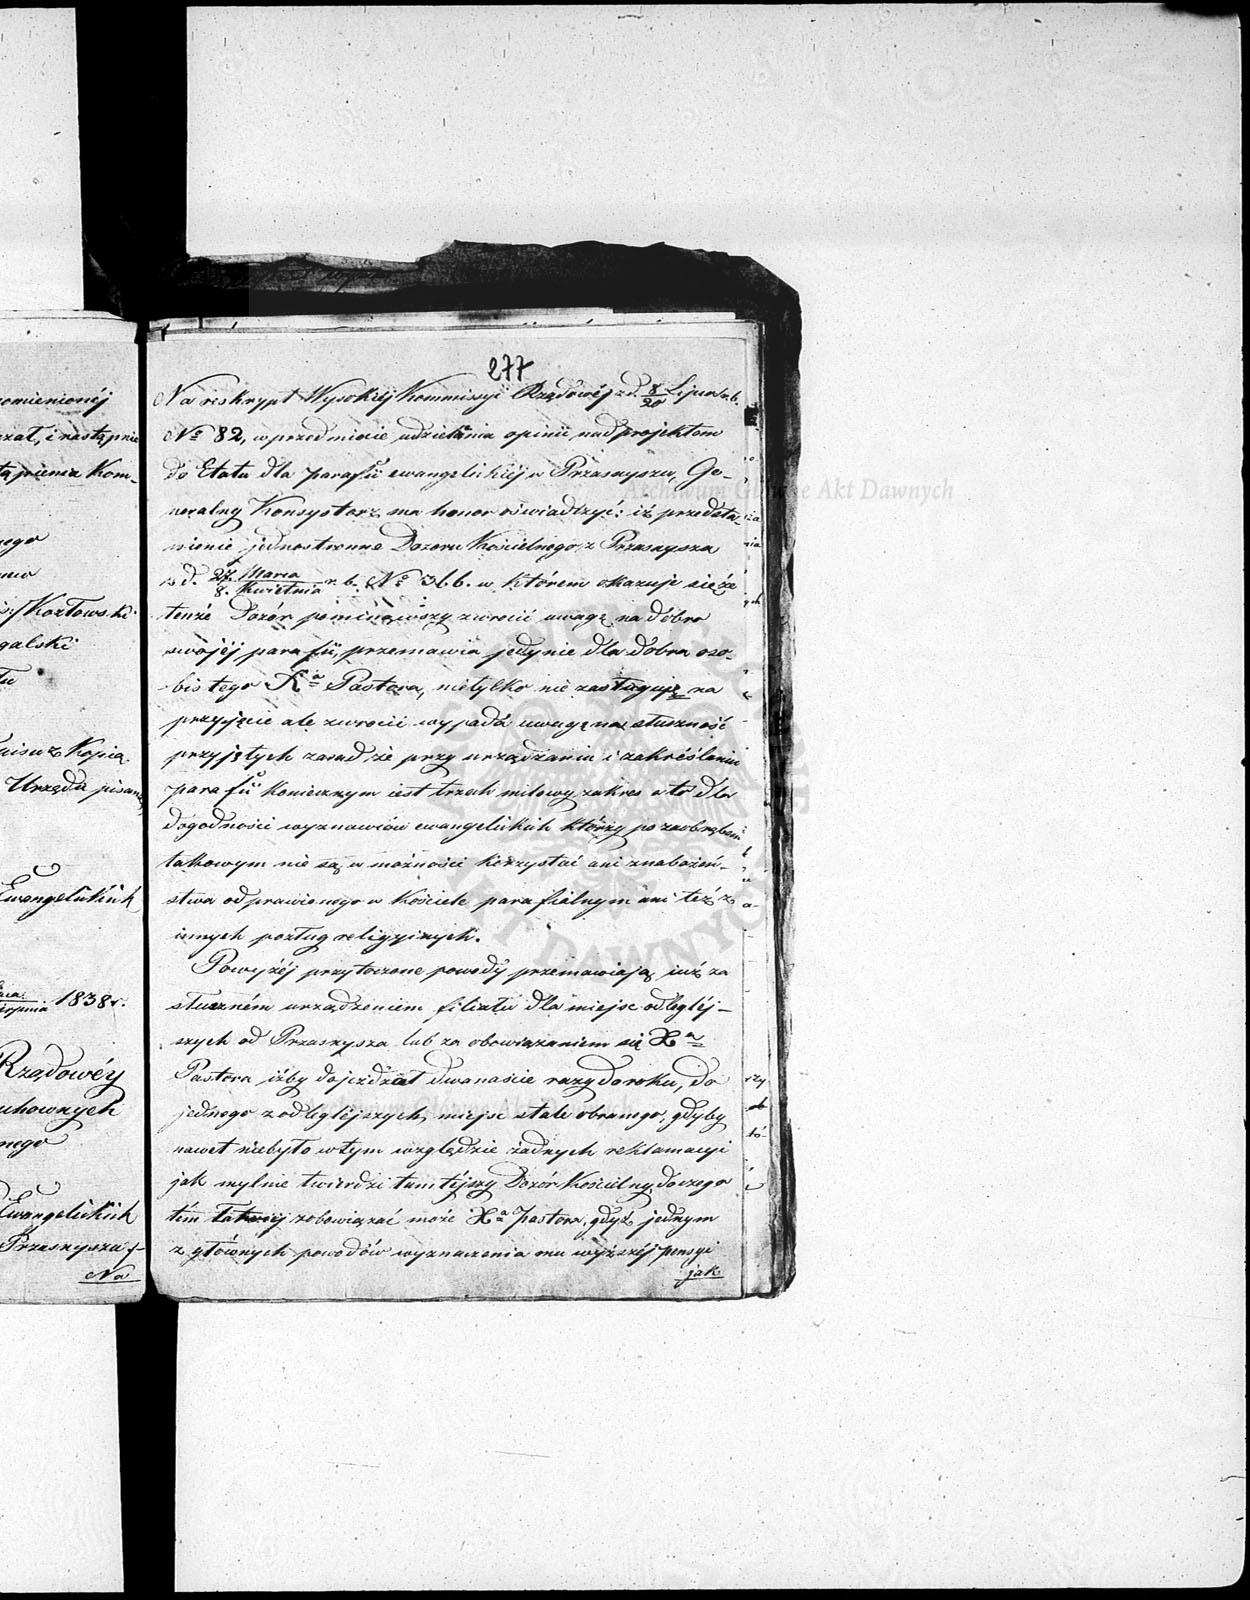 omienionéj
zał, i nastąpnie
tąpienia Kom-
nego
Kozłowski
galski
Kopią
Urzędu pisana
Ewangelickich
1838 r.
Rządowéy
uchownych
nego
Ewangelickich
Przasnysza /-
Na
277
Na reskrypt Wysokiéj Kommissyi Rządowéj z d. 8/20 Lipca r. b.
No 82, w przedmiocie udzielenia opinii nad projektem
do Etatu dla parafii ewangelickiéj w Przasnyszu, Ge-
neralny Konsystorz ma honor oświadczyć: iż przedsta-
wienie jednostronne Dozoru Kościelnego z Przasnysza
z d. 27. Marca / 8. Kwietnia r. b. No 366. w którem okazuje się że
tenże Dozór pominąwszy zwrócić uwagę na dobro
swojéj parafii, przemawia jedynie dla dobra oso-
bistego Xa Pastora, nietylko nie zasługuje na
przyjęcie ale zwrócić wypada uwagę na słuszność
przyjętych zasad że przy urządzaniu i zakréśleniu
parafii koniecznym iest trzech milowy zakres a to dla
dogodności wyznawców ewangelickich którzy po za obrębem
takowym nie są w możności korzystać ani z nabożeń-
stwa odprawianego w Kościele parafialnym ani też z
innych posług religyinych.
Powyżéj przytoczone powody przemawiają iuż za
słuszném urządzeniem filiału dla miejsc odległéj-
szych od Przasnysza lub za obowiązaniem się Xa
Pastora iżby dojeżdżał dwanaście razy do roku, do
jednego z odleglejszych miejsc stale obranego, gdyby
nawet niebyło w tym względzie żadnych reklamacyi
jak mylnie twierdzi tamtéjszy Dozór Kościelny, do czego
tém łatwiej zobowiązać może Xa Pastora, gdyż jednym
z głównych powodów wyznaczenia mu wyższéj pensyi
jak
Archiwum Główne Akt Dawnych
Archiwum Główne Akt Dawnych